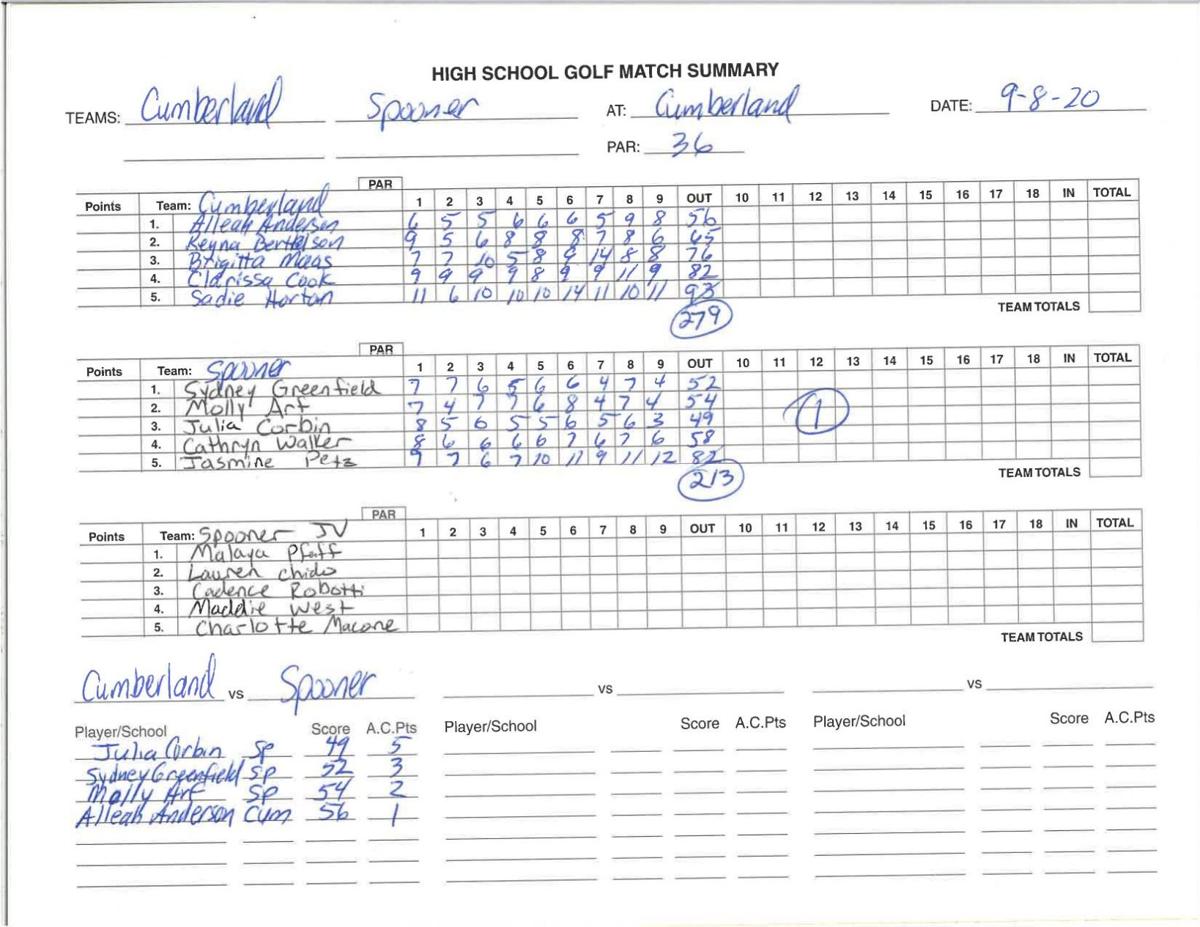 HIGH SCHOOL GOLF MATCH SUMMARY
TEAMS: Cumberland Spooner AT: Cumberland DATE: 9-8-20
PAR: 36
PAR
Points Team: Cumberland 1 2 3 4 5 6 7 8 9 OUT 10 11 12 13 14 15 16 17 18 IN TOTAL
1. Alleah Anderson 6 5 5 6 6 6 5 9 8 56
2. Keyna Berthelson 9 5 6 8 8 8 7 8 6 65
3. Brigitta Maas 7 7 10 5 8 9 14 8 8 76
4. Clarissa Cook 9 9 9 9 8 9 9 11 9 82
5. Sadie Horton 11 6 10 10 10 14 11 10 11 93
TEAM TOTALS
279
PAR
Points Team: Spooner 1 2 3 4 5 6 7 8 9 OUT 10 11 12 13 14 15 16 17 18 IN TOTAL
1. Sydney Greenfield 7 7 6 5 6 6 4 7 4 52
2. Molly Arf 7 4 7 7 6 8 4 7 4 54
1
3. Julia Corbin 8 5 6 5 5 6 5 6 3 49
4. Cathryn Walker 8 6 6 6 6 7 6 7 6 58
5. Jasmine Petz 9 7 6 7 10 11 9 11 12 82
TEAM TOTALS
213
PAR
Points Team: Spooner JV 1 2 3 4 5 6 7 8 9 OUT 10 11 12 13 14 15 16 17 18 IN TOTAL
1. Malaya Pfaff
2. Lauren Chido
3. Cadence Robotti
4. Maddie West
5. Charlotte Macone
TEAM TOTALS
Cumberland vs Spooner vs vs
Player/School Score A.C.Pts Player/School Score A.C.Pts Player/School Score A.C.Pts
Julia Corbin Sp 49 5
Sydney Greenfield Sp 52 3
Molly Arf Sp 54 2
Alleah Anderson Cum 56 1